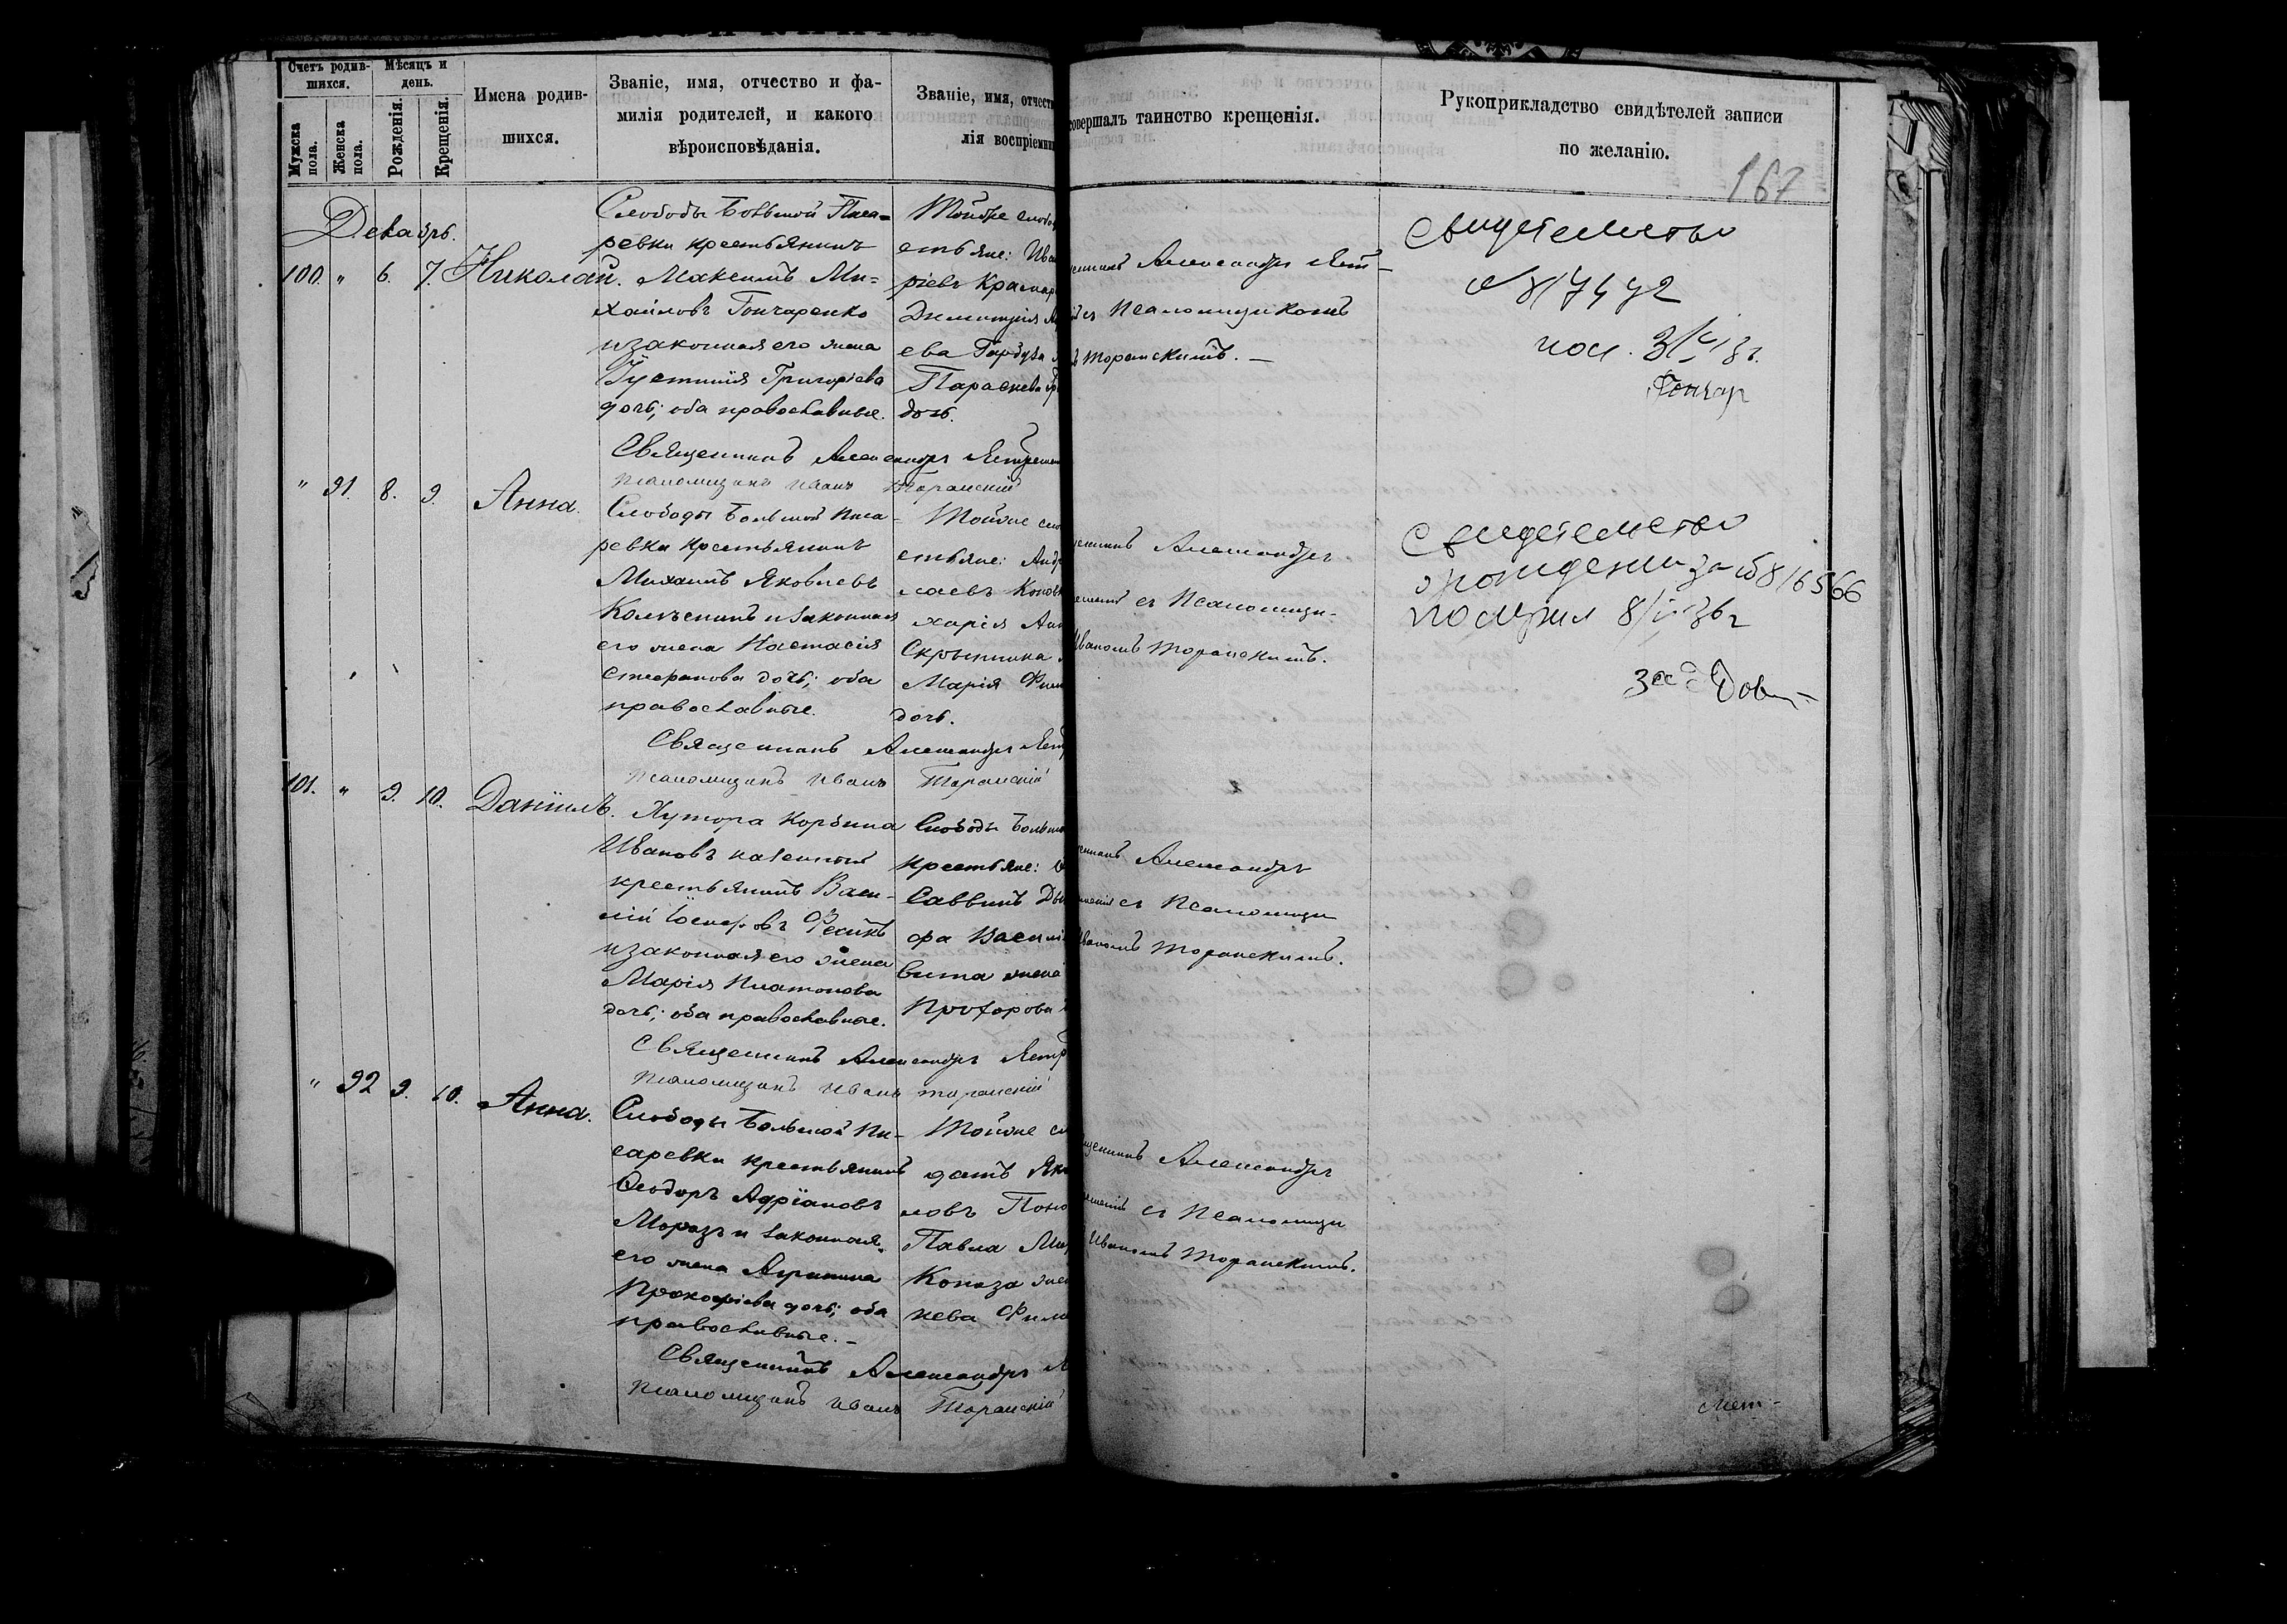 Счетъ родив-
шихся.
Мѣсяцъ и
день.
Мужска
пола.
Женска
пола.
Рожденія.
Крещенія.
Имена родив-
шихся.
Званіе, имя, отчество и фа-
милія родителей, и какого
вѣроисповѣданія.
Званіе, имя, отчест
лія воспріемни
совершалъ таинство крещенія.
Рукоприкладство свидѣтелей записи
по желанію.
167
Декабрь.
100. " 6. 7. Николай.
Слободы Большой Писа-
ревки крестьянинъ
Максимъ Ми-
хайловъ Гончаренко
и законная его жена
Іустинія Григорьева
дочь; оба православные.
Тойже слобо
естьяне: Ива
ріевъ Крамар
Димитрія
ева Гарбуза
Параскева
дочь.
Александръ Яст-
съ Псаломщикомъ
Торанскимъ.
Свидетельство
№ 817492
пол.
Гончар
Священникъ Александръ
Псаломщикъ Иванъ Торанскій
" 91. 8. 9. Анна.
Слободы Большой Писа-
ревки крестьянинъ
Михаилъ Яковлевъ
Колѣсникъ и законная
его жена Настасія
Стефанова дочь; оба
православные.
Тойже сло
естьяне: Анд
лаевъ Конов
харія
Скрынника
Марія Фил
дочь.
Александръ
съ Псаломщи-
Иваномъ Торанскимъ.
Свидетельство
о рождении за № 816566
получил 8/
Священникъ Александръ Яст
Псаломщикъ Иванъ Торанскій
101. " 9. 10. Даніилъ.
Хутора Корбина
Ивановъ казенный
крестьянинъ Васи-
лій Іосифовъ Фесикъ
и законная его жена
Марія Платонова
дочь; оба православные.
Слободы Больш
крестьяне:
Саввинъ
фа Васил
вита жена
Прохорова
Александръ
съ Псаломщи
Иваномъ Торанскимъ.
Священникъ Александръ Яст
Псаломщикъ Иванъ Торанскій
" 92 9. 10. Анна.
Слободы Большой Пи-
саревки крестьянинъ
Ѳеодоръ Адріановъ
Морозъ и законная
его жена Агрипина
Прокофіева дочь; оба
православные. -
Тойже сл
датъ Як
ловъ Поно
Павла
Коноза жен
кева Фили
Александръ
съ Псаломщи
Иваномъ Торанскимъ.
Священникъ Александръ
Псаломщикъ Иванъ Торанскій